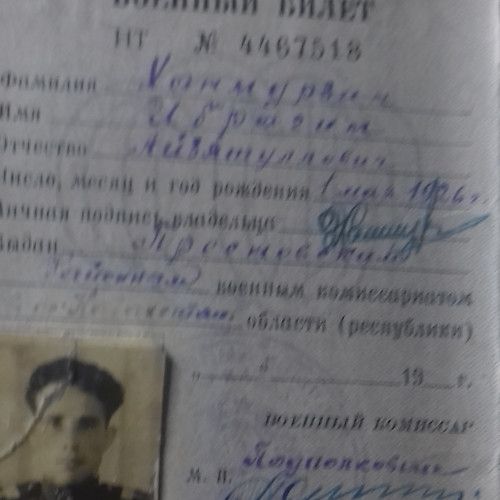 ВОЕННЫЙ БИЛЕТ
НТ № 4467518
Фамилия Ханмурзин
Имя Ибрагим
Отчество
Число, месяц и год рождения 1 мая 1926 г.
Личная подпись владельца
Выдан
Районным военным комиссариатом
области (республики)
19 г.
ВОЕННЫЙ КОМИССАР
М. П. Подполковник